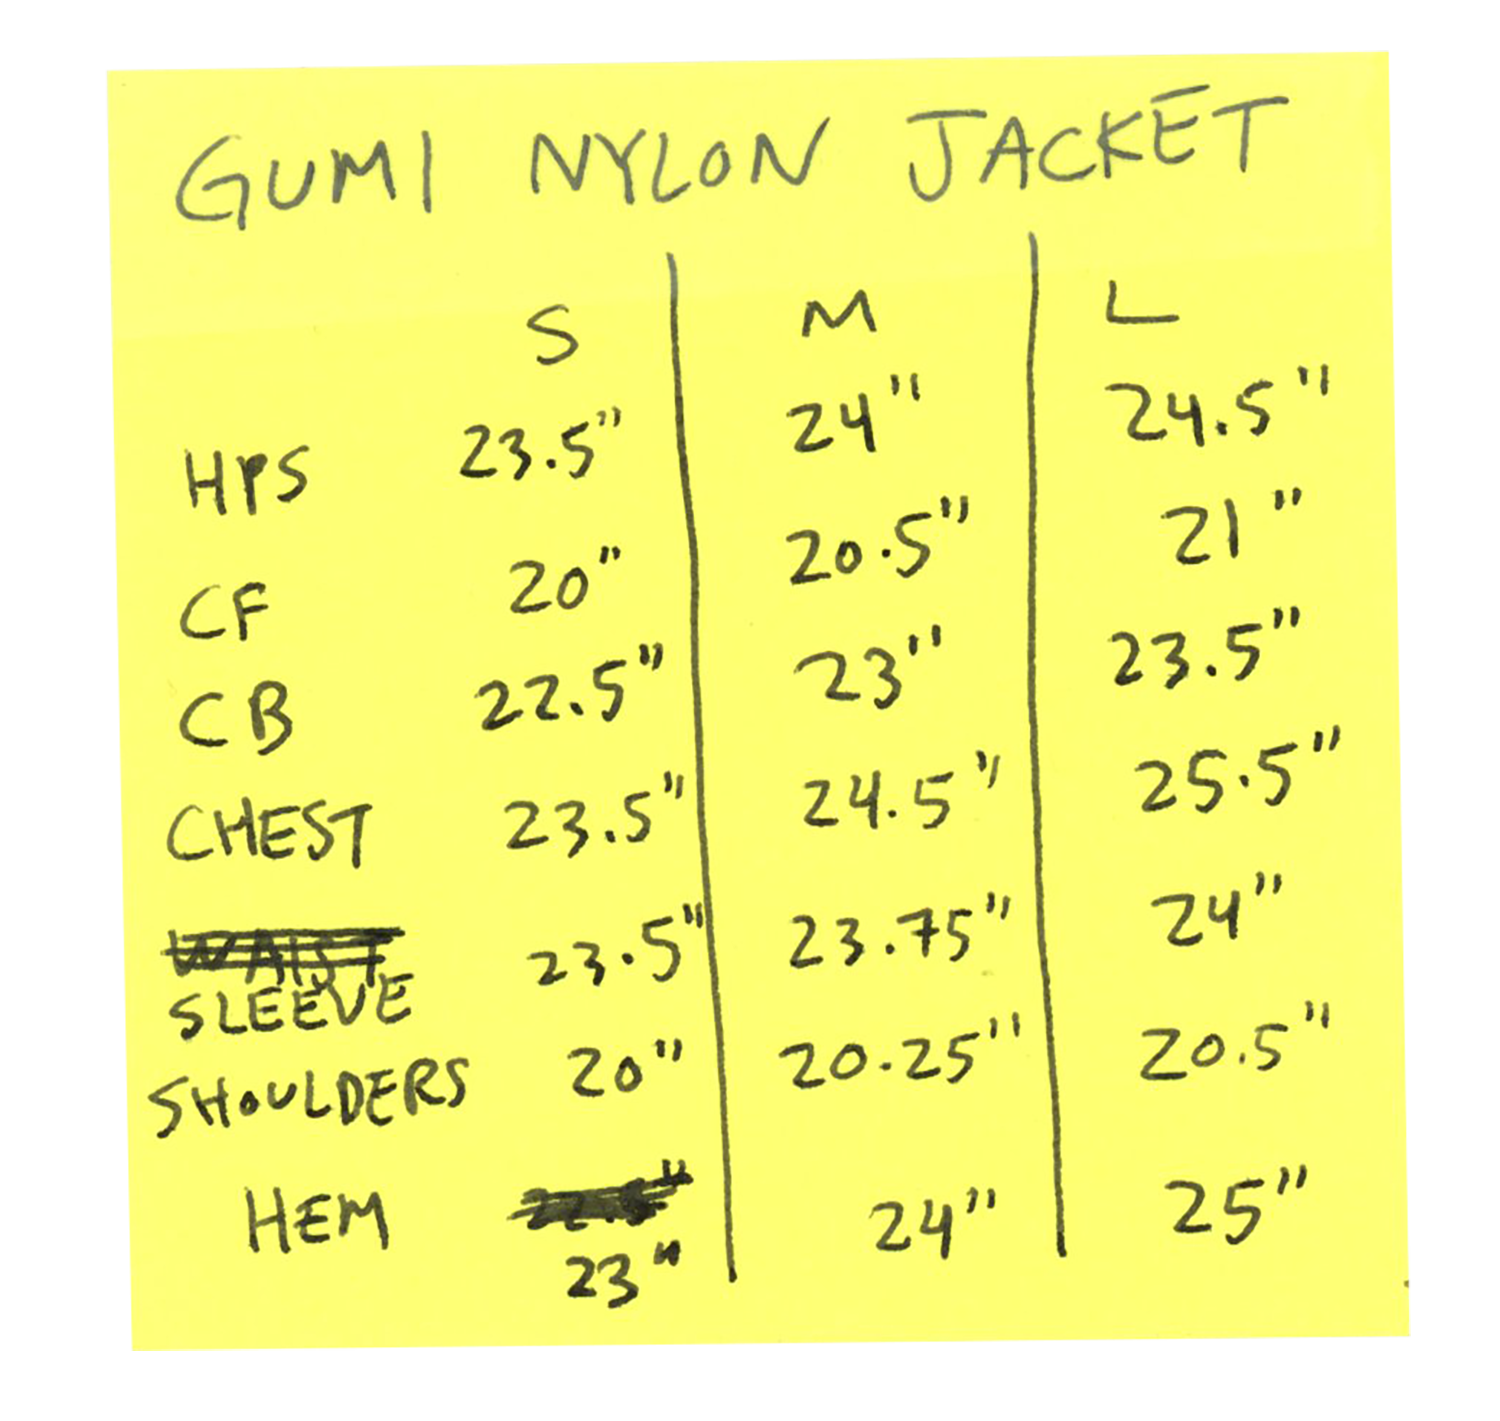 GUMI NYLON JACKET
S M L
HPS 23.5" 24" 24.5"
CF 20" 20.5" 21"
CB 22.5" 23" 23.5"
CHEST 23.5" 24.5" 25.5"
WAIST
SLEEVE 23.5" 23.75" 24"
SHOULDERS 20" 20.25" 20.5"
HEM 22.5" 24" 25"
23"